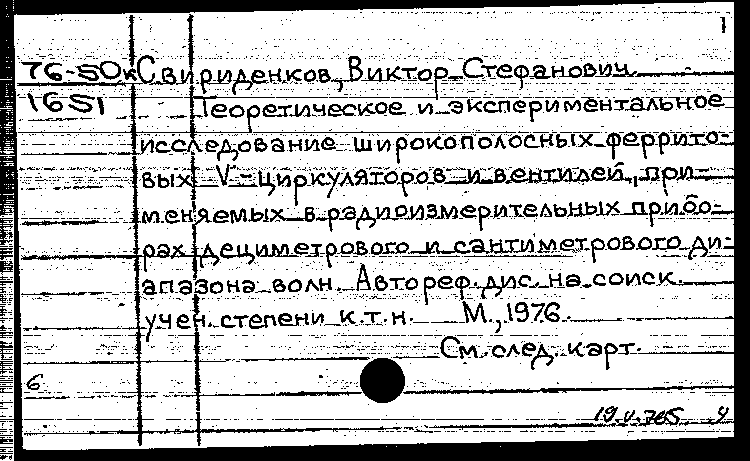 1
76-50к Свириденков, Виктор Стефанович
1651 Теоретическое и экспериментальное
исследование широкополосных феррито-
вых V-циркуляторов и вентилей, при-
меняемых в радиоизмерительных прибо-
рах дециметрового и сантиметрового ди-
апазона волн. Автореф. дис. на соиск.
учен. степени к.т.н. М., 1976.
См. след. карт.
6
19.V.76